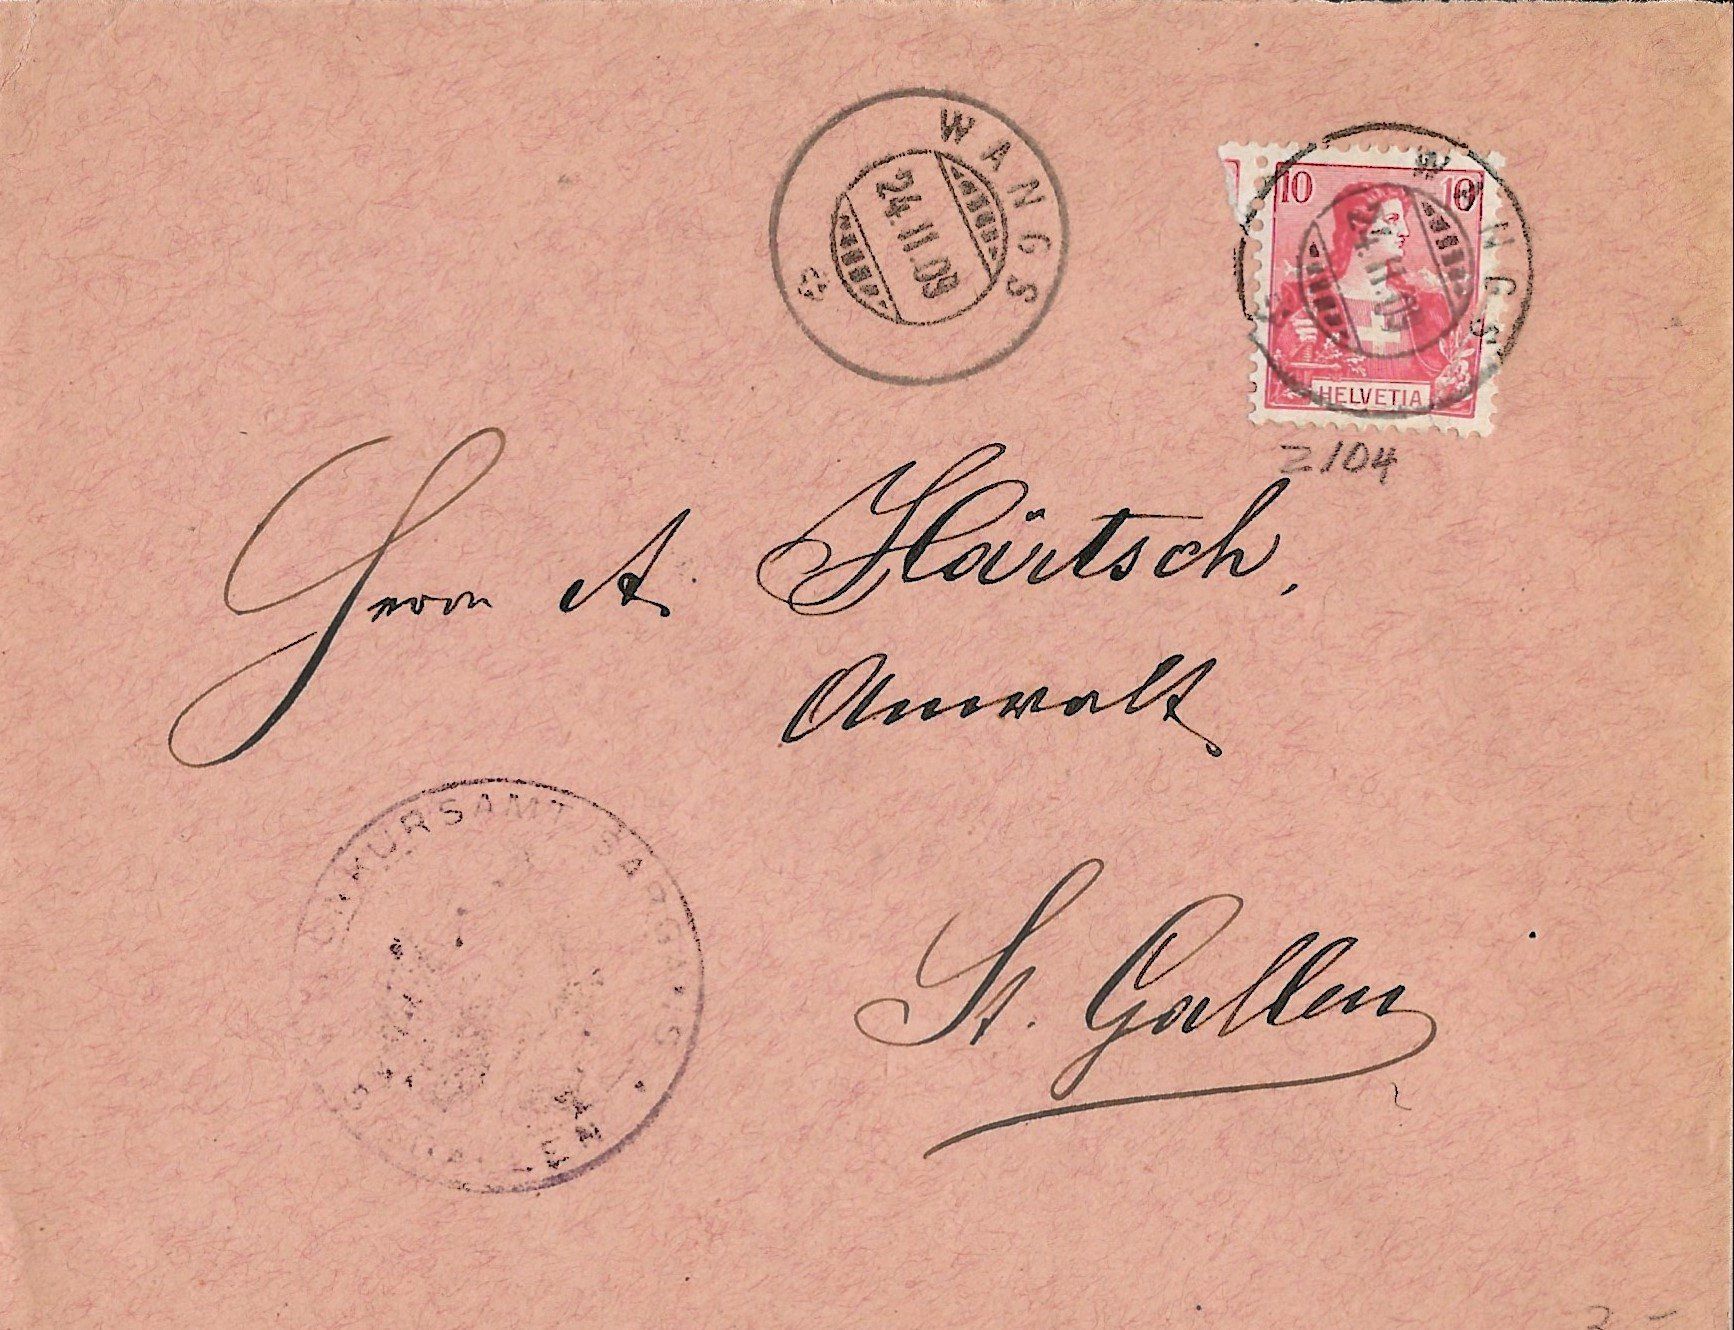 WANGS
24.II.09
10 10
WANGS
HELVETIA
Z 104
Herrn A. Härtsch,
Anwalt
St. Gallen
KONKURSAMT SARGANS